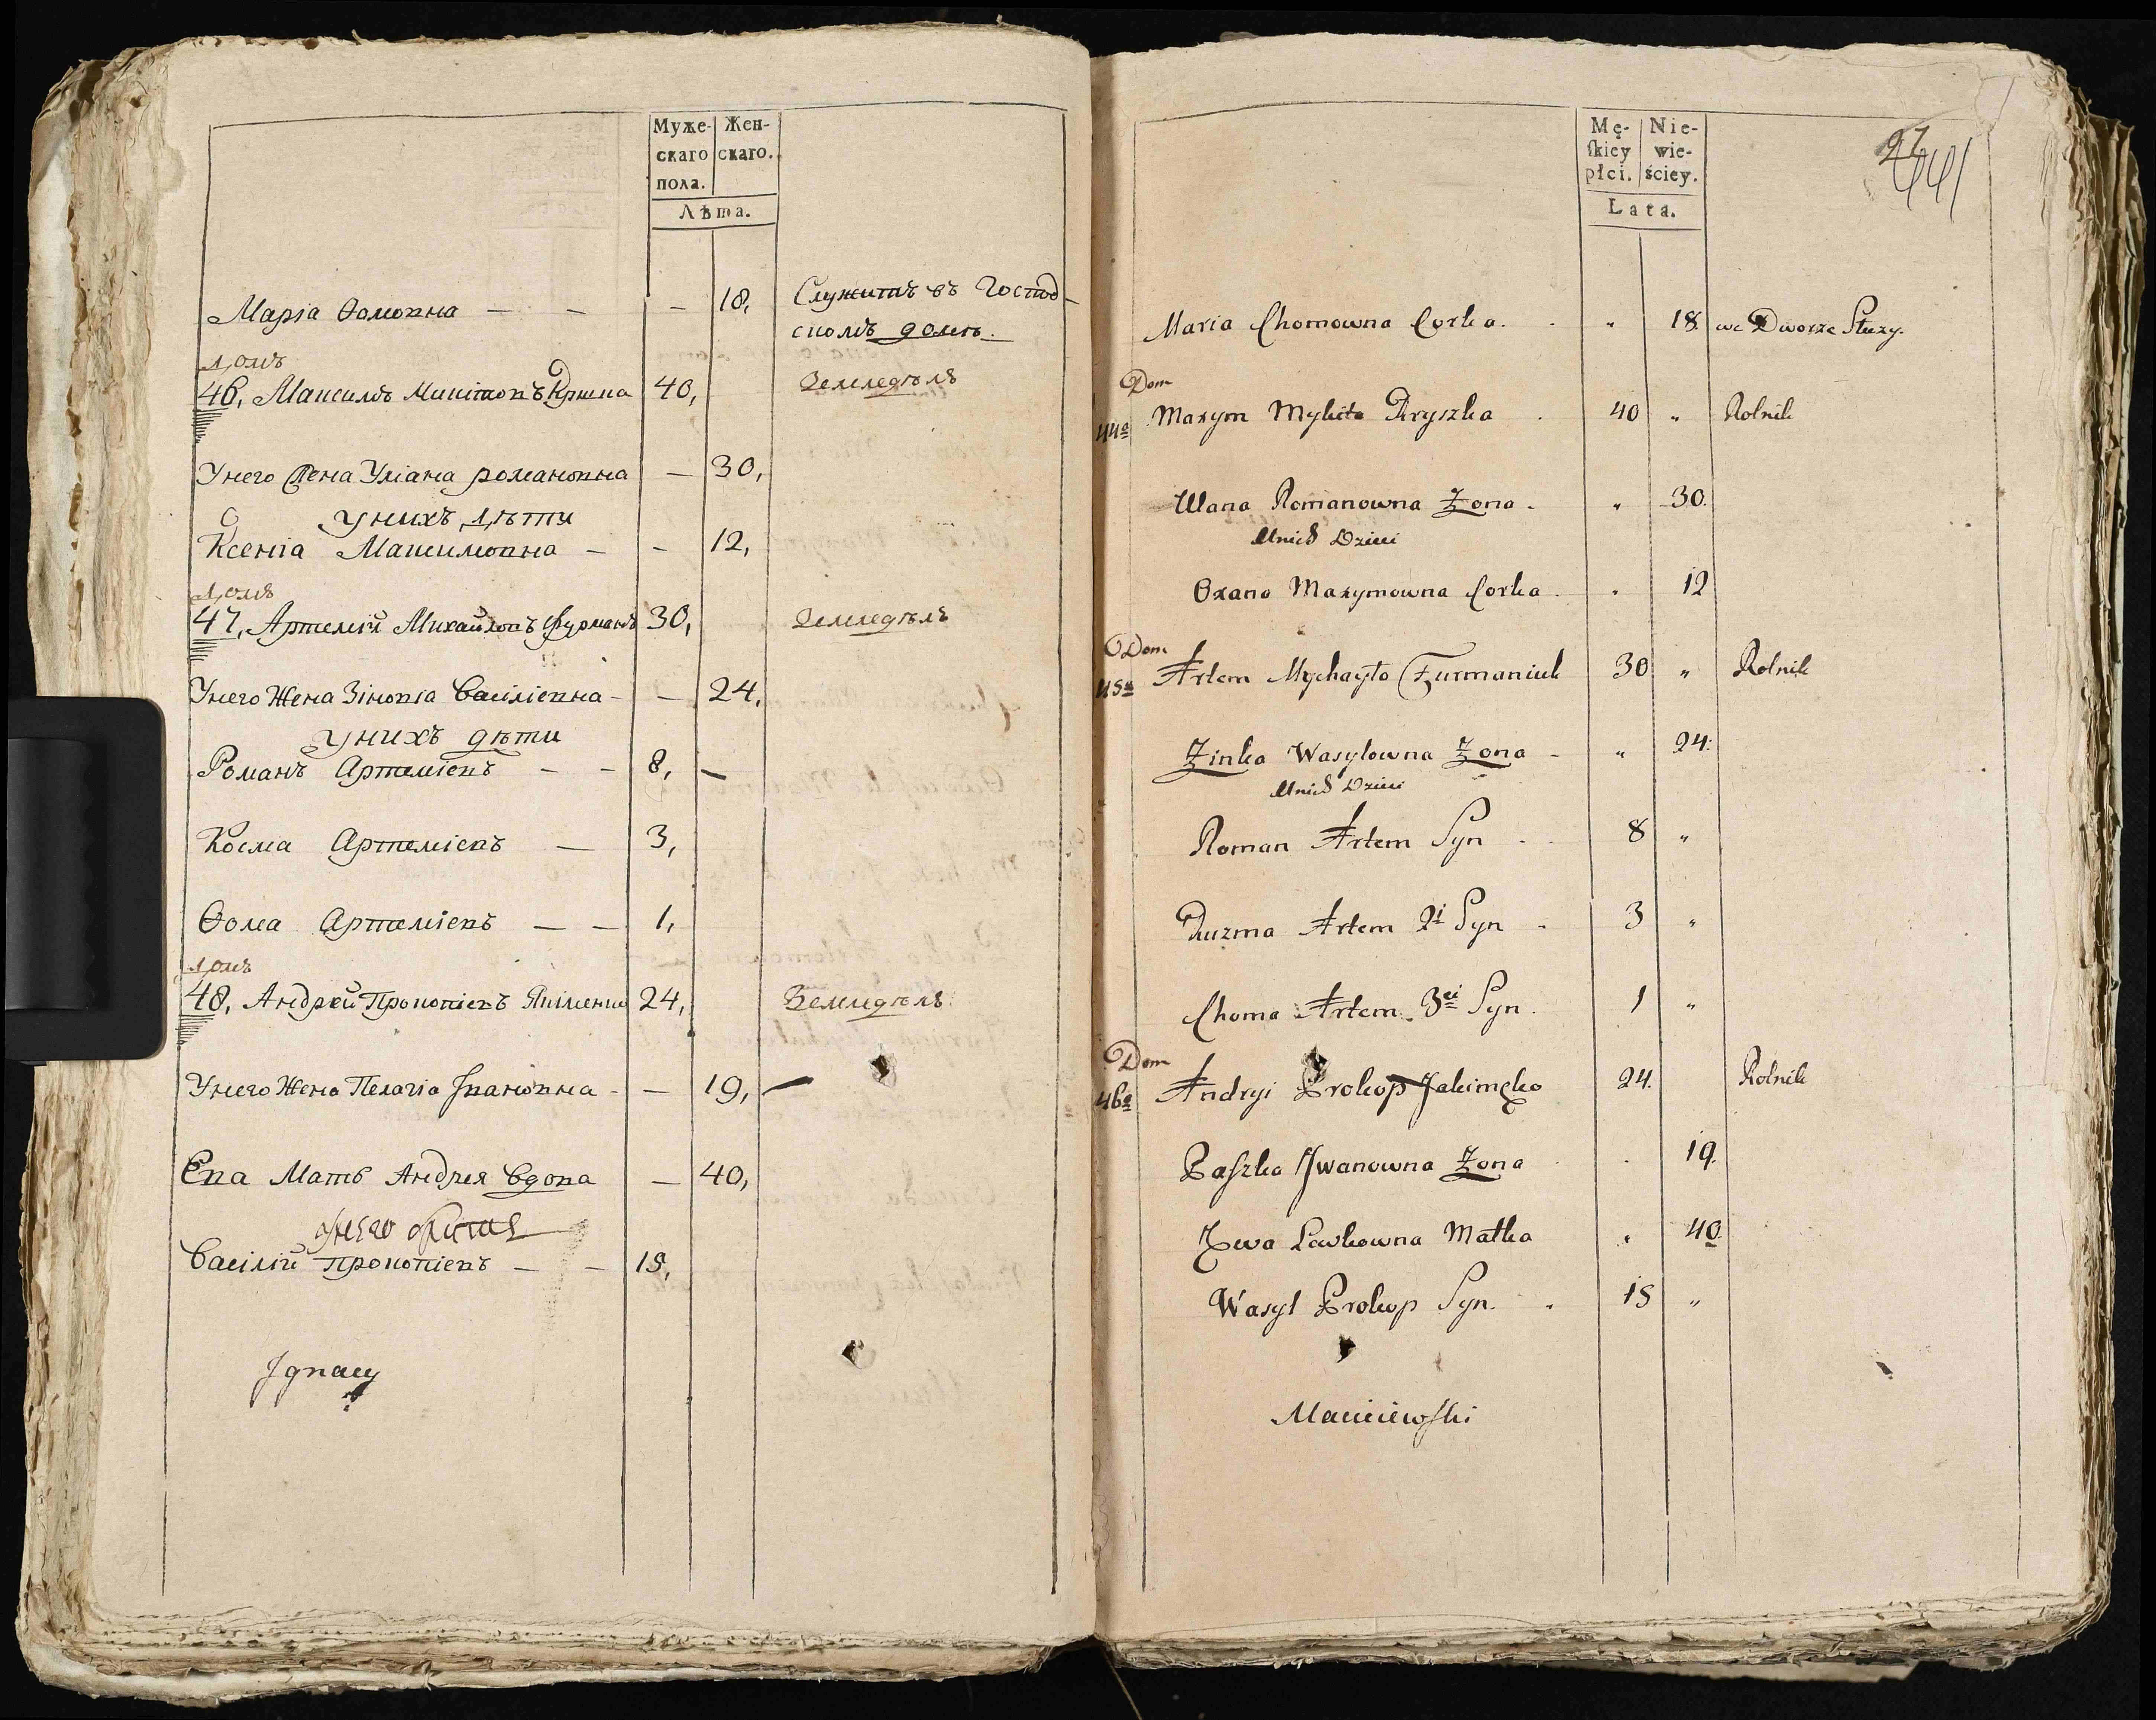 Муже- Жен-
скаго скаго.
пола.
Лѣта.
Марія Ѳомовна — — — 18, Служитъ въ Господ-
скомъ домѣ.
Домъ
46, Максимъ Микітовъ Кришка 40, Земледѣлъ
Унего Жена Уліана романовна — 30,
Унихъ Дѣти
Ксенія Максимовна — — 12,
Домъ
47, Артемій Михайловъ Фурманъ 30, Земледѣлъ
Унего Жена Зіновія Васіліевна — — 24,
Унихъ дѣти
Романъ Артеміевъ — — 8, —
Косма Артеміевъ — 3,
Ѳома Артеміевъ — — 1,
Домъ
48, Андрей Прокопіевъ Якіменко 24, Земледѣлъ
Унего Жена Пелагіа Івановна — — 19, —
Ева Мать Андрея Вдова — 40,
Васілій Прокопіевъ — — 15,
Jgnacy
Mę- Nie-
skiey wie-
płci. ściey.
Lata.
27
441
Maria Chomowna Corka. . " 18 we Dworze Słuzy.
Dom
44a Maxym Mykita Kryszka . 40 " Rolnik
Ulana Romanowna Zona . " 30.
Unich Dzieci
Oxana Maxymowna Corka . " 12
Dom
45a Artem Mychayło Furmaniuk 30 " Rolnik
Zinka Wasylowna Zona - " 24.
Unich Dzieci
Roman Artem Syn . . 8 "
Kuzma Artem 2i Syn . 3 "
Choma Artem 3ei Syn . 1 "
Dom
46a Andryi Prokop Jakimęko 24. Rolnik
Paszka Jwanowna Zona . . 19.
Ewa Lewkowna Matka " 40.
Wasyl Prokop Syn. . 15 "
Macciewski